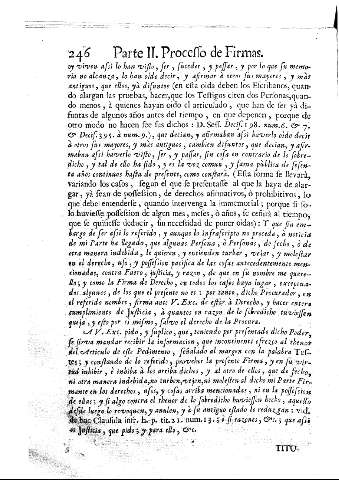 246 Parte II. Processo de Firmas.
oy viven assi lo han visto, ser, suceder, y passar, y por lo que su memo-
ria no alcanza, lo han oido decir, y afirmar à otros sus mayores, y màs
antiguos, que ellos, yà difuntos (en esta oida deben los Escribanos, quan-
do alargan las pruebas, hacer, que los Testigos citen dos Personas, quan-
do menos, à quienes hayan oido el articulado, que han de ser yà di-
funtas de algunos años antes del tiempo, en que deponen, porque de
otro modo no hacen fee sus dichos: D. Sess. Decis. 98. num. 6. & 7.
& Decis. 395. n. 9.), que decian, y afirmaban assi haverlo oido decir
à otros sus mayores, y màs antiguos, tambien difuntos, que decian, y afir-
maban assi haverlo visto, ser, y passar, sin cosa en contrario de lo sobre-
dicho, y tal de ello ha sido, y es la voz comun, y fama pública de sesen-
ta años continuos hasta de presente, como constarà. (Esta forma se llevarà,
variando los casos, segun el que se presentasse al que la haya de alar-
gar, yà sean de possession, de derechos afirmativos, ò prohibitivos, lo
que debe entenderse, quando intervenga la immemorial; porque si so-
lo huviesse possession de algun mes, meses, ò años, se ceñirà al tiempo,
que se quisiesse deducir, sin necessidad de poner oidas): Y que sin em-
bargo de ser assi lo referido, y aunque lo infrascripto no proceda, à noticia
de mi Parte ha llegado, que algunas Personas, ò Personas, de hecho, ò de
otra manera indebida, le quieren, y entienden turbar, vejar, y molestar
en el derecho, uso, y possession pacifica de las cosas antecedentemente men-
cionadas, contra Fuero, justicia, y razon, de que en su nombre me quere-
llo; y como la Firma de Derecho, en todos los casos haya lugar, exceptua-
dos algunos, de los que el presente no es: por tanto, dicho Procurador, en
el referido nombre, firma ante V. Exc. de estàr à Derecho, y hacer entero
cumplimiento de Justicia, à quantos en razon de lo sobredicho tuviessen
queja, y esto por si mismo, salvo el derecho de la Procura.
A V. Exc. pido, y suplico, que, teniendo por presentado dicho Poder,
se sirva mandar recibir la informacion, que incontinenti ofrezco al thenor
del Articulo de este Pedimento, señalado al margen con la palabra Tes-
tes; y constando de lo referido, proveher la presente Firma, y en su vir-
tud inhibir, è inhiba à los arriba dichos, y al otro de ellos, que de hecho,
ni otra manera indebida, no turben, vejen, ni molesten al dicho mi Parte Fir-
mante en los derechos, usos, y cosas arriba mencionados, ni en la possession
de ellas; y si algo contra el thenor de lo sobredicho huviessen hecho, aquello
desde luego lo revoquen, y anulen, y à su antiguo estado lo reduzgan: vid.
de hac Clausula infr. h. p. tit. 23. num. 13. si si razones, &c. que assi
es Justicia, que pido; y para ello, &c.
TITU-